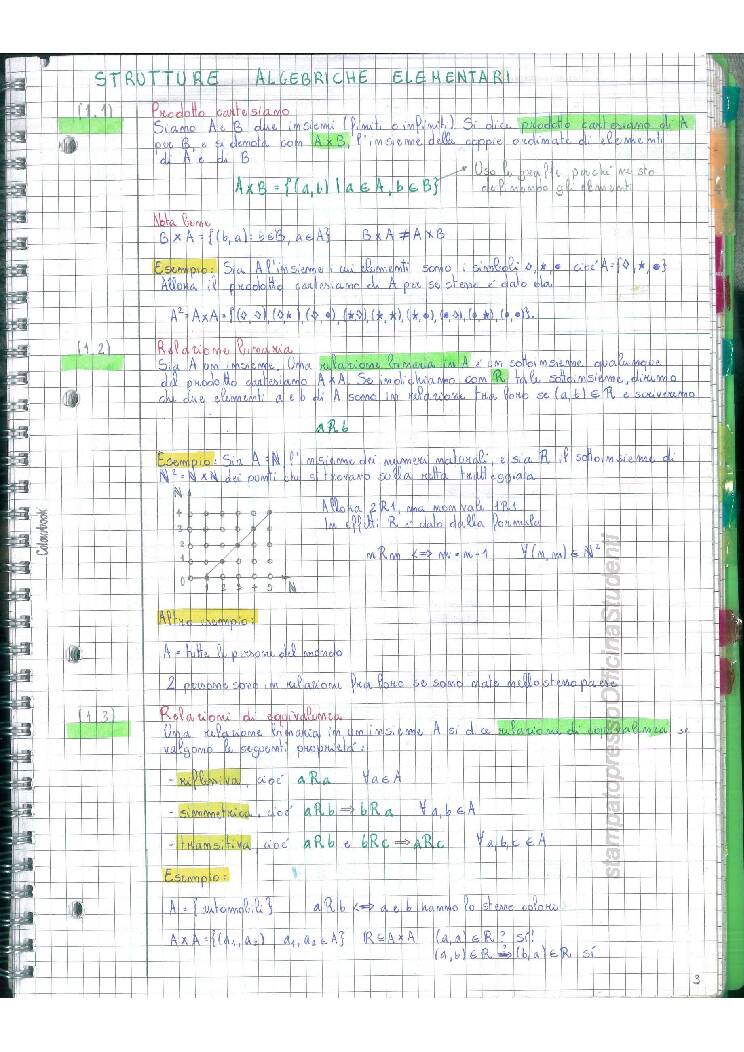 STRUTTURE ALGEBRICHE ELEMENTARI
(1.1) Prodotto cartesiano
Siano A e B due insiemi (finiti o infiniti) Si dice prodotto cartesiano di A
per B, e si denota con A×B, l'insieme delle coppie ordinate di elementi
di A e di B
A×B = {(a,b) | a∈A, b∈B}
Uso le graffe, perché ne sto
delineando gli elementi
Nota bene
B×A = {(b,a): b∈B, a∈A} B×A ≠ A×B
Esempio: Sia A l'insieme i cui elementi sono i simboli ◇,★,● cioè A={◇,★,●}
Allora il prodotto cartesiano di A per se stesso è dato da
A²=A×A={(◇,◇),(◇,★),(◇,●),(★,◇),(★,★),(★,●),(●,◇),(●,★),(●,●)}.
(1.2) Relazione binaria
Sia A un insieme. Una relazione binaria in A è un sottoinsieme qualunque
del prodotto cartesiano A×A. Se indichiamo con R tale sottoinsieme, diremo
che due elementi a e b di A sono in relazione fra loro se (a,b)∈R e scriveremo
aRb
Esempio: Sia A=N, l'insieme dei numeri naturali, e sia R il sottoinsieme di
N²=N×N dei punti che si trovano sulla retta tratteggiata
N
4
3
2
1
0 1 2 3 4 5 N
Allora 2R1, ma non vale 1R1
In effetti R è dato dalla formula
nRm <=> m = n-1 ∀(n,m)∈N²
Altro esempio:
A = tutte le persone del mondo
2 persone sono in relazione fra loro se sono nate nello stesso paese
(1.3) Relazioni di equivalenza
Una relazione binaria in un insieme A si dice relazione di equivalenza se
valgono le seguenti proprietà:
- riflessiva, cioè aRa ∀a∈A
- simmetrica, cioè aRb ⇒ bRa ∀a,b∈A
- transitiva, cioè aRb e bRc ⇒ aRc ∀a,b,c∈A
Esempio:
A = {automobili} aRb <=> a e b hanno lo stesso colore
A×A={(a₁,a₂) a₁,a₂∈A} R⊆A×A (a,a)∈R? Sí!
(a,b)∈R ⇒? (b,a)∈R Sí
3
Colourbook
stampato presso OfficinaStudenti